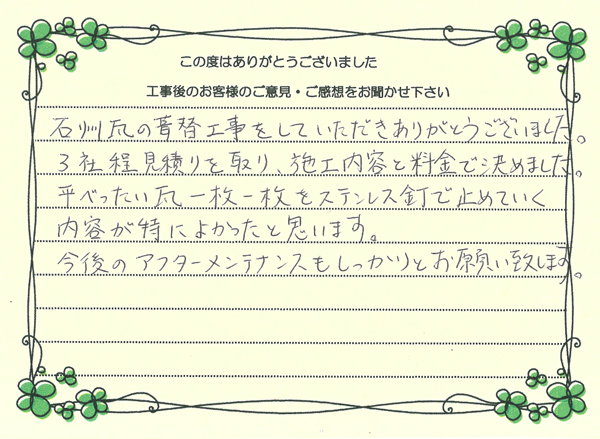 この度はありがとうございました
工事後のお客様のご意見・ご感想をお聞かせ下さい
石州瓦の葺替工事をしていただきありがとうございました。
3社程見積りを取り、施工内容と料金で決めました。
平べったい瓦一枚一枚をステンレス釘で止めていく
内容が特によかったと思います。
今後のアフターメンテナンスもしっかりとお願い致します。